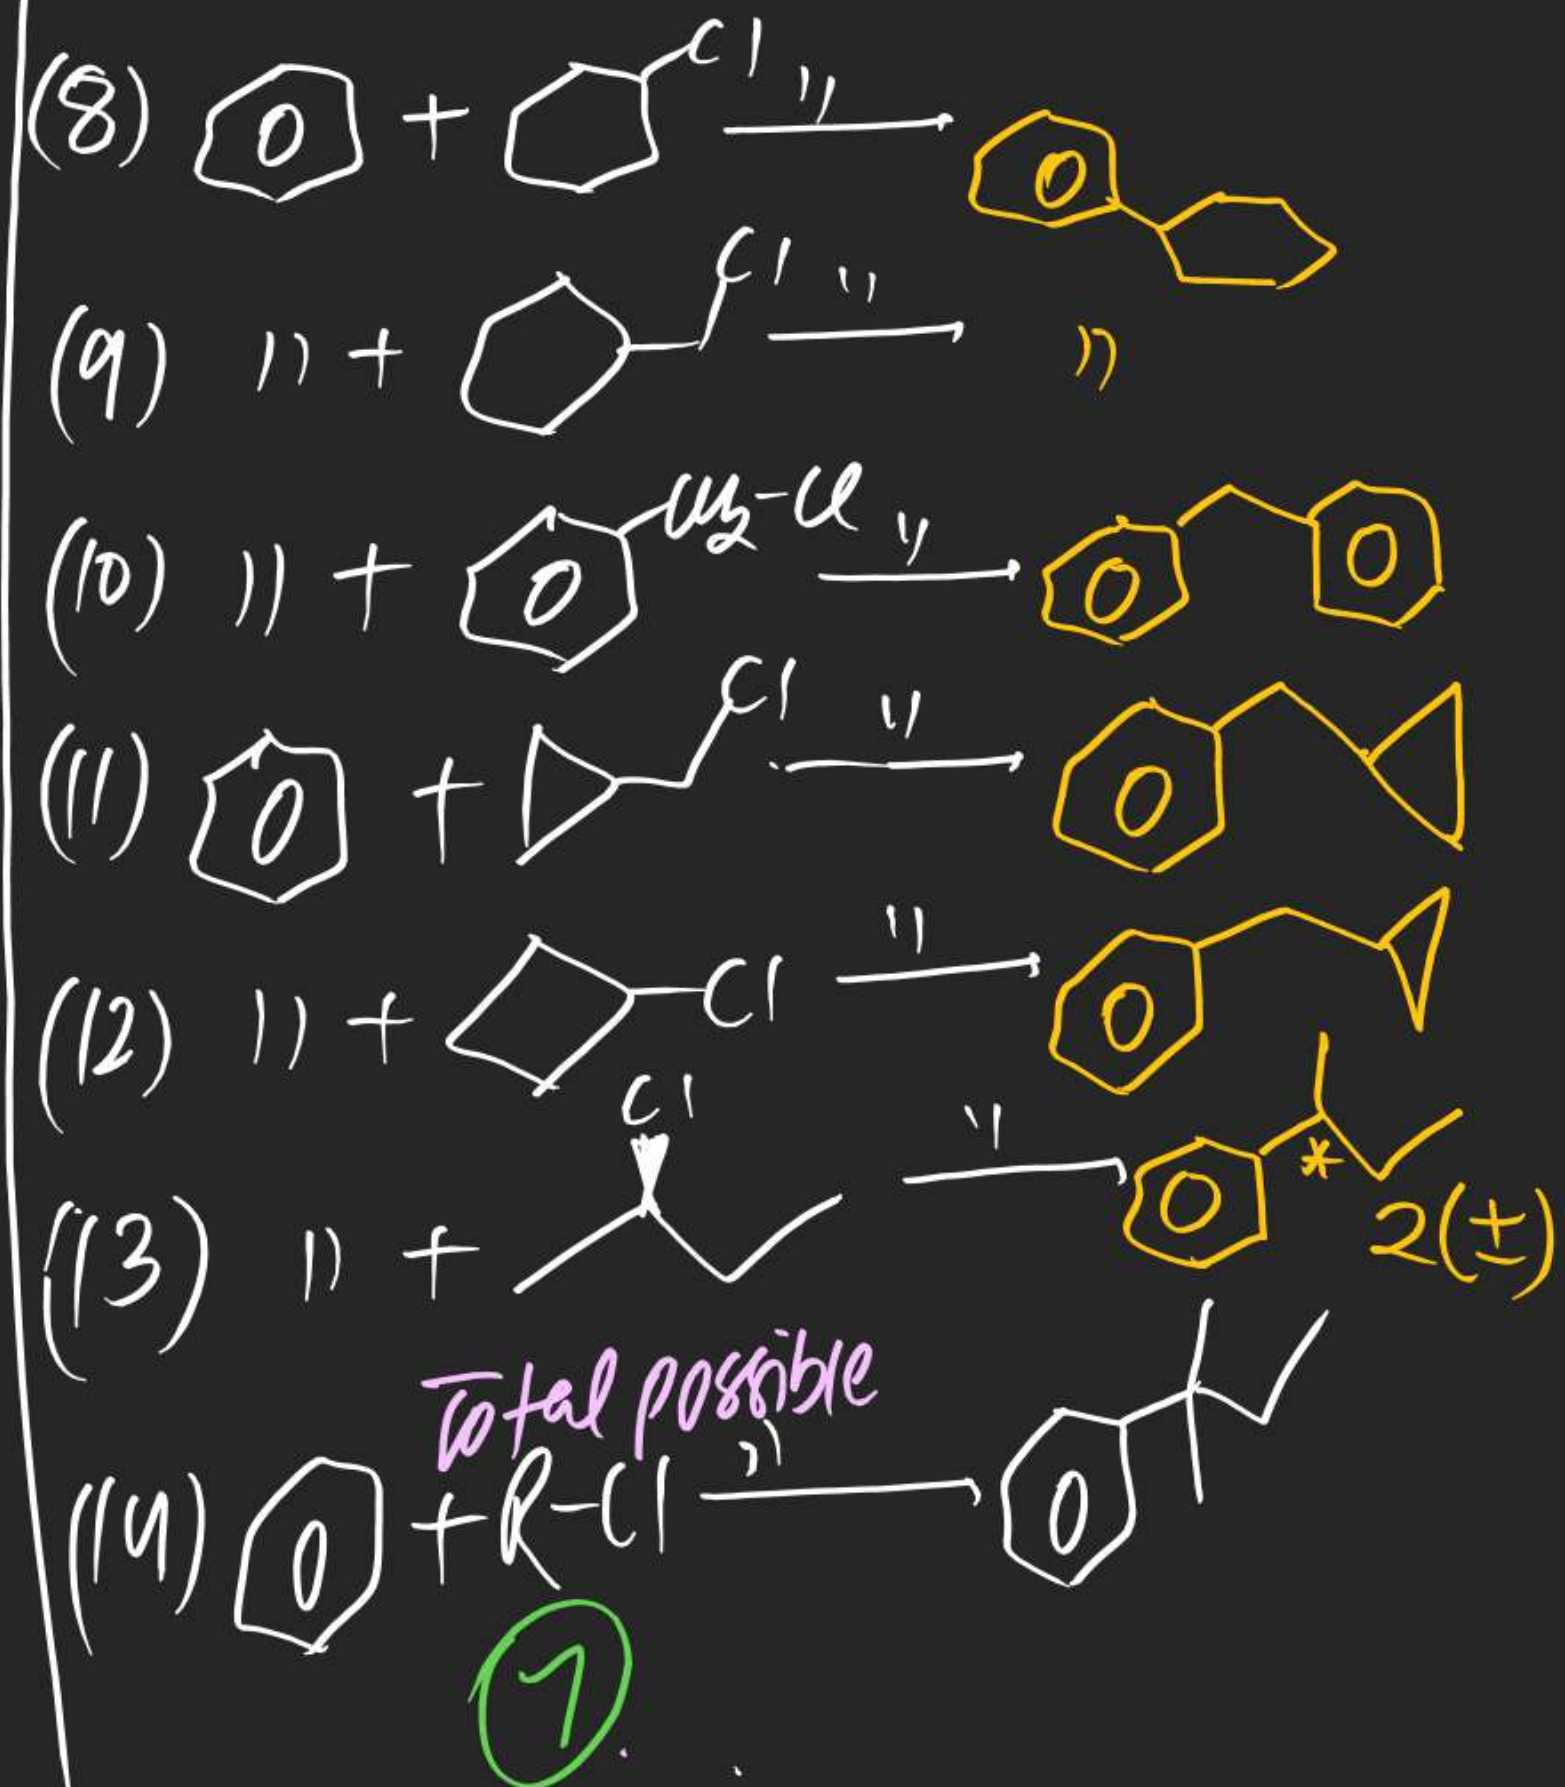 (8) + Cl '' →
(9) '' + Cl '' → ''
(10) '' + CH2-Cl '' →
(11) + Cl '' →
(12) '' + Cl '' →
(13) '' + Cl '' → * 2(±)
Total possible
(14) + R-Cl '' →
7